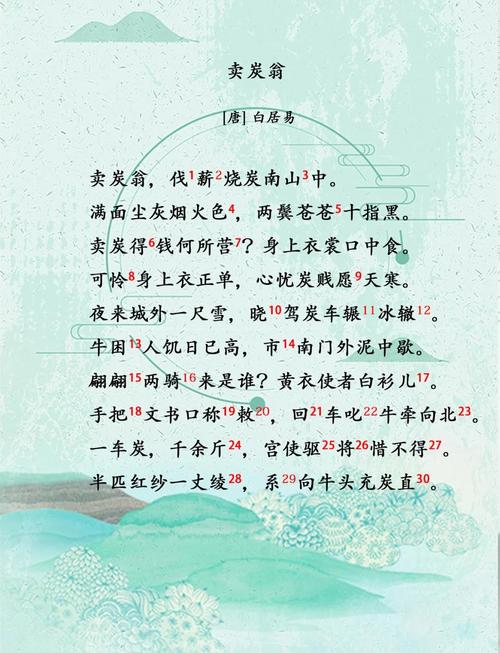 卖炭翁
[唐] 白居易
卖炭翁，伐1薪2烧炭南山3中。
满面尘灰烟火色4，两鬓苍苍5十指黑。
卖炭得6钱何所营7？身上衣裳口中食。
可怜8身上衣正单，心忧炭贱愿9天寒。
夜来城外一尺雪，晓10驾炭车辗11冰辙12。
牛困13人饥日已高，市14南门外泥中歇。
翩翩15两骑16来是谁？黄衣使者白衫儿17。
手把18文书口称19敕20，回21车叱22牛牵向北23。
一车炭，千余斤24，宫使驱25将26惜不得27。
半匹红纱一丈绫28，系29向牛头充炭直30。